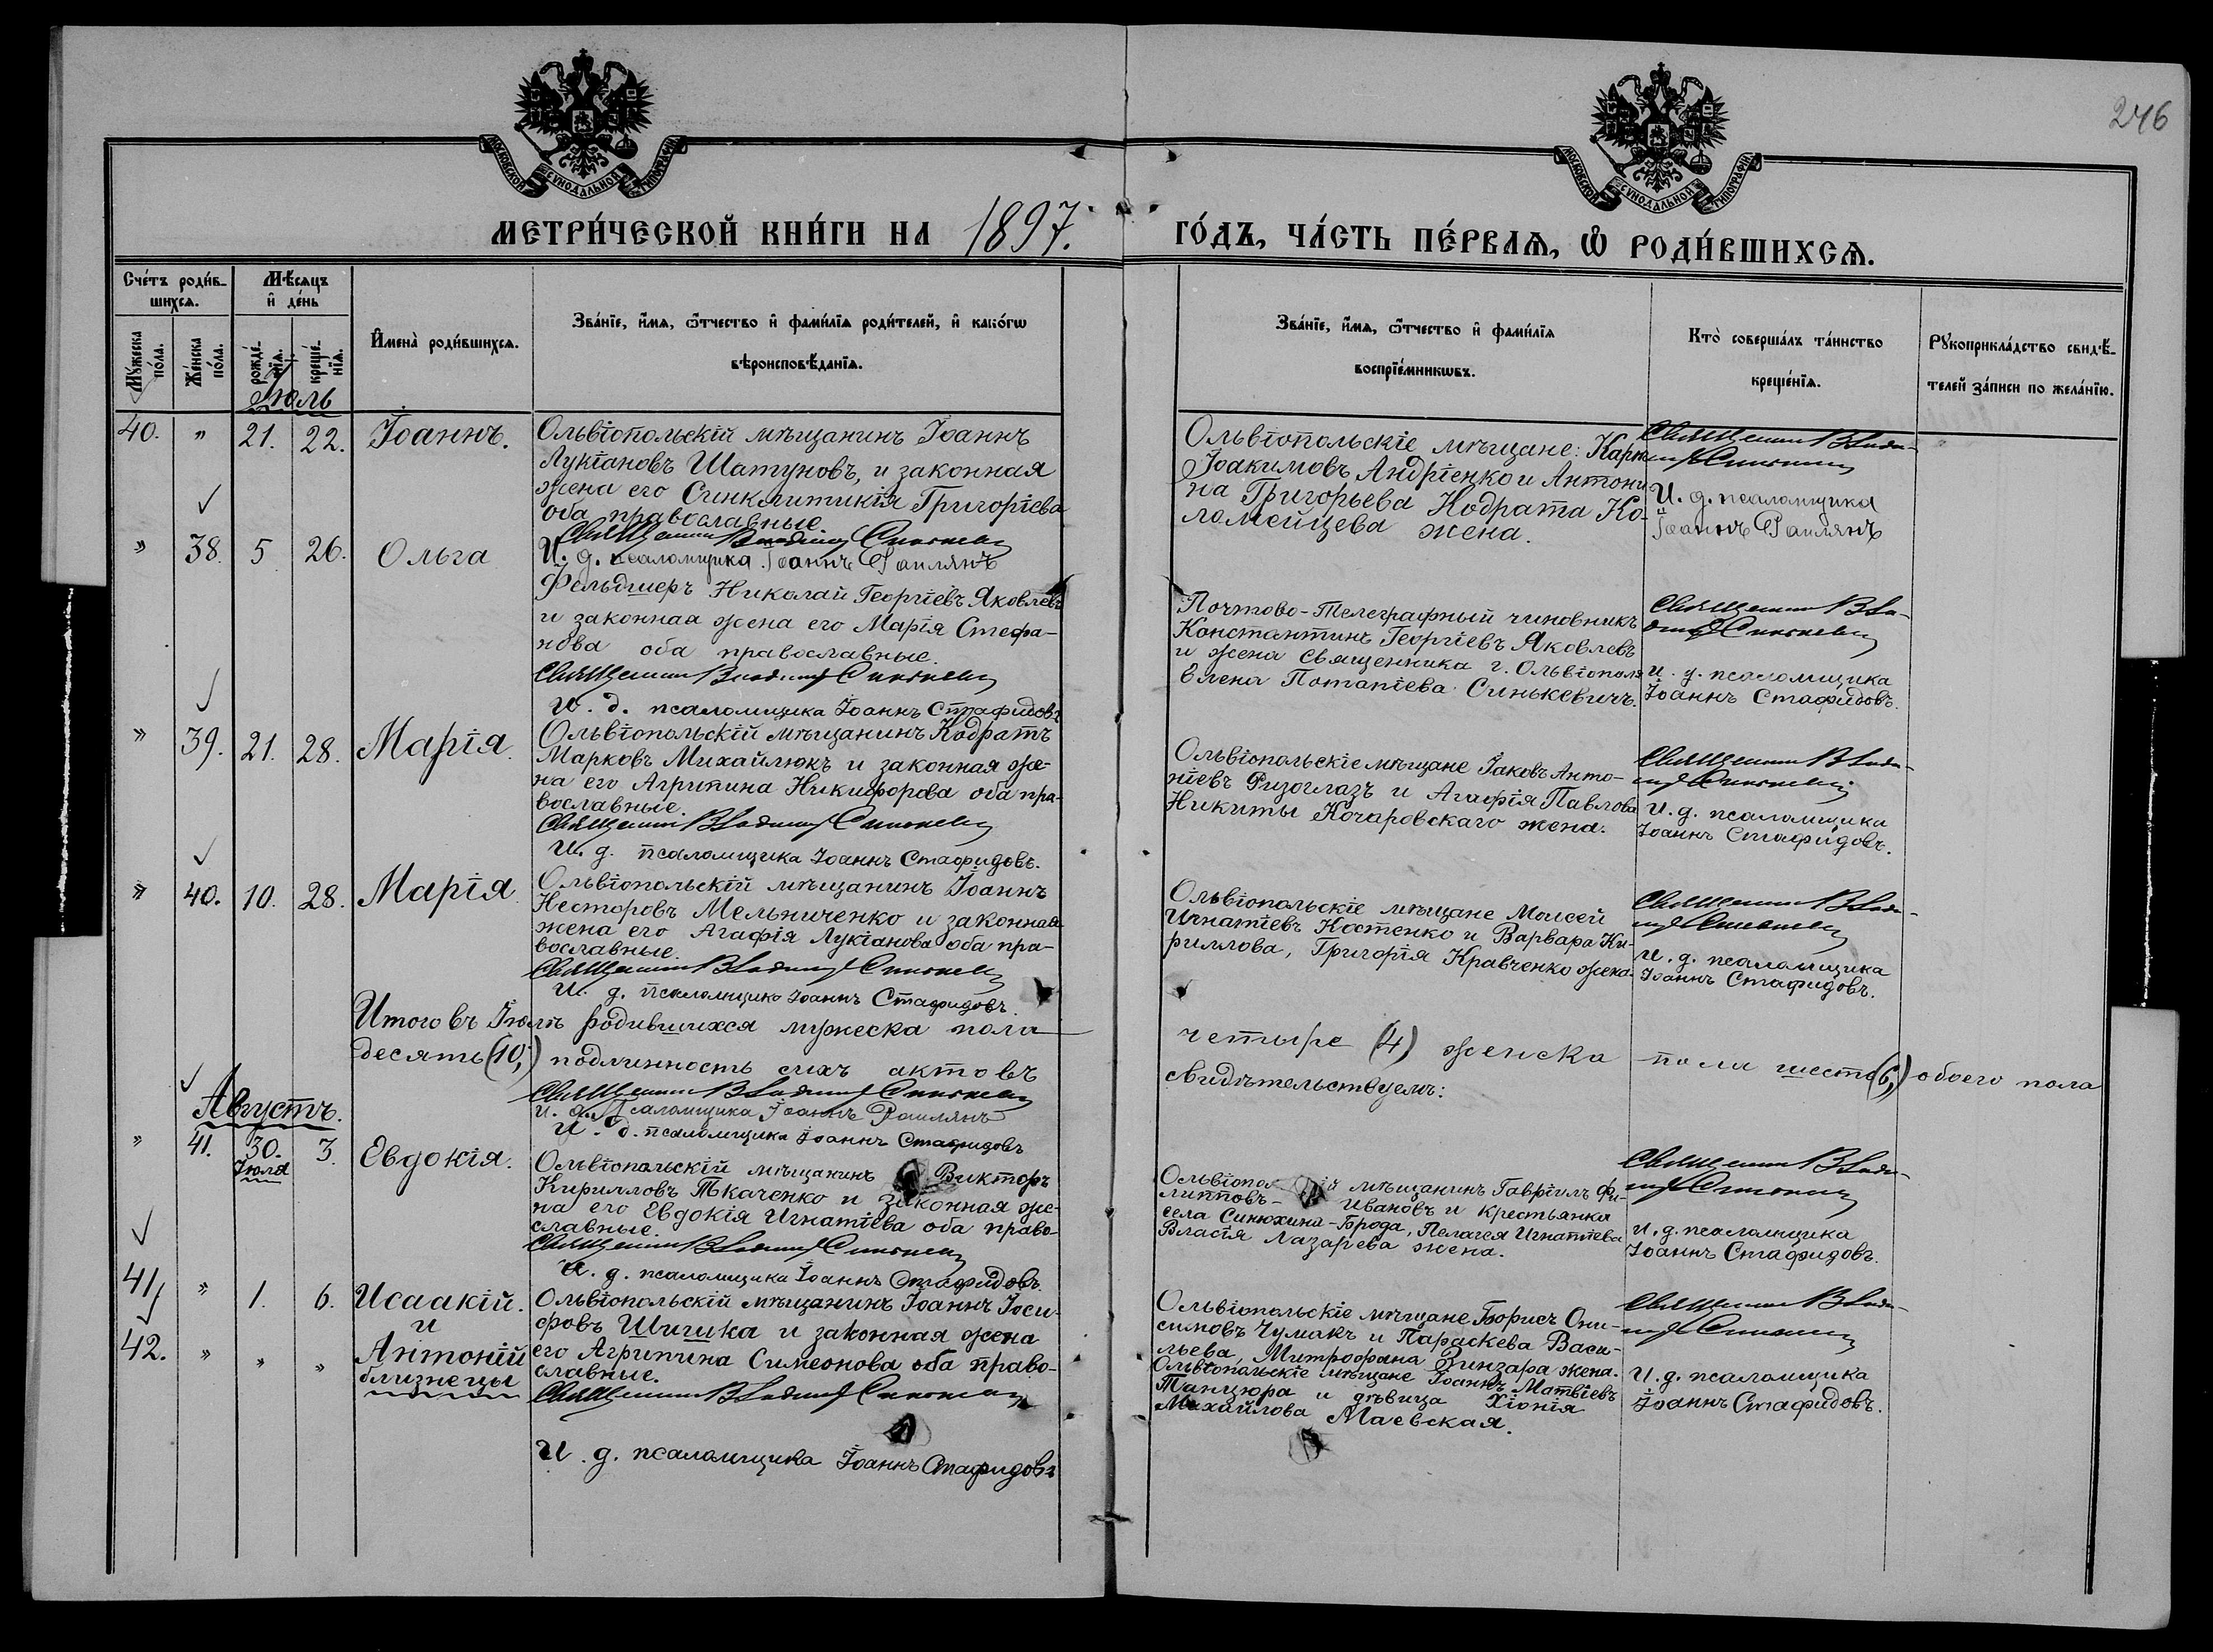 246
МОСКОВСКОЙ СѴНОДАЛЬНОЙ ТИПОГРАФІИ
МОСКОВСКОЙ СѴНОДАЛЬНОЙ ТИПОГРАФІИ
МЕТРИ́ЧЕСКОЙ КНИ́ГИ НА 1897. ГО́ДЪ, ЧА́СТЬ ПЕ́РВАѦ, Ѡ РОДИ́ВШИХСѦ.
Сче́тъ роди́в-
шихсѧ.
Мѣ́сѧцъ
и҆ де́нь
Мꙋ́жеска по́ла.
Же́нска по́ла.
рожде́-нїѧ.
креще́-нїѧ.
И҆мена̀ роди́вшихсѧ.
Зва́нїе, и҆́мѧ, ѻ҆́тчество и҆ фами́лїѧ роди́телей, и҆ како́гѡ
вѣроисповѣ́данїѧ.
Зва́нїе, и҆́мѧ, ѻ҆́тчество и҆ фами́лїѧ
воспрїе́мникѡвъ.
Кто̀ соверша́лъ та́инство
креще́нїѧ.
Рꙋкоприкла́дство свидѣ́-
телей за́писи по жела́нїю.
Іюль
40. " 21. 22. Іоаннъ.
Ольвіопольскій мѣщанинъ Іоаннъ
Лукіановъ Шатуновъ, и законная
жена его Синклитикія Григоріева
оба православные.
Священникъ Владимір Синькевич
И. д. псаломщика Іоаннъ Раилянъ
Ольвіопольскіе мѣщане: Карп
Іоакимовъ Андріенко и Антони
на Григорьева Кодрата Ко-
ломейцева жена.
Священникъ Влади-
мір Синькевич
И. д. псаломщика
Іоаннъ Раилянъ
" 38. 5 26. Ольга
Фельдшеръ Николай Георгіевъ Яковлевъ
и законная жена его Марія Стефа-
нова оба православные.
Священникъ Владимір Синькевич
И. д. псаломщика Іоаннъ Стафидовъ
Почтово-Телеграфный чиновникъ
Константинъ Георгіевъ Яковлевъ
и жена священника г. Ольвіополя
Елена Потапіева Синькевичъ.
Священникъ Вла-
димір Синькевич
И. д. псаломщика
Іоаннъ Стафидовъ.
" 39. 21. 28. Марія.
Ольвіопольскій мѣщанинъ Кодратъ
Марковъ Михайлюкъ и законная же-
на его Агрипина Никифорова оба пра-
вославные.
Священникъ Владимір Синькевич
И. д. псаломщика Іоаннъ Стафидовъ.
Ольвіопольскіе мѣщане Іаковъ Анто-
ніевъ Ризоглазъ и Агафія Павлова
Никиты Кочаровскаго жена.
Священникъ Влади-
мір Синькевич
И. д. псаломщика
Іоаннъ Стафидовъ.
" 40. 10. 28. Марія.
Ольвіопольскій мѣщанинъ Іоаннъ
Несторовъ Мельниченко и законная
жена его Агафія Лукіанова оба пра-
вославные.
Священникъ Владимір Синькевич
И. д. псаломщика Іоаннъ Стафидовъ.
Ольвіопольскіе мѣщане Моисей
Игнатіевъ Костенко и Варвара Ки-
риллова, Григорія Кравченко жена.
Священникъ Влади-
мір Синькевич
И. д. псаломщика
Іоаннъ Стафидовъ.
Итого въ Іюлѣ родившихся мужеска пола четыре (4) женска пола шесть (6,) обоего пола
десять (10,) подлинность сихъ актовъ свидѣтельствуемъ:
Священникъ Владимір Синькевич
И. д. Псаломщика Іоаннъ Раилянъ
И. д. псаломщика Іоаннъ Стафидовъ
Августъ.
" 41. 30. Іюля 3. Евдокія.
Ольвіопольскій мѣщанинъ Викторъ
Кирилловъ Ткаченко и законная же-
на его Евдокія Игнатіева оба право-
славные.
Священникъ Владимір Синькевич
И. д. псаломщика Іоаннъ Стафидовъ.
мѣщанинъ Гавріилъ Фи-
липповъ Ивановъ и крестьянка
села Синюхина-Брода, Пелагея Игнатіева
Власія Лазарева жена.
Священникъ Влади-
мір Синькевич
И. д. псаломщика
Іоаннъ Стафидовъ.
41 " 1. 6. Исаакій.
и
42. " " " Антоній
близнецы
Ольвіопольскій мѣщанинъ Іоаннъ Іоси-
фовъ Шишка и законная жена
его Агрипина Симеонова оба право-
славные.
Священникъ Владимір Синькевич
И. д. псаломщика Іоаннъ Стафидовъ
Ольвіопольскіе мѣщане Борисъ Они-
симовъ Чумакъ и Параскева Васи-
льева Митрофана Зинзара жена.
Ольвіопольскіе мѣщане Іоаннъ Матвіевъ
Танцюра и дѣвица Хіонія
Михайлова Маевская.
Священникъ Влади-
мір Синькевич
И. д. псаломщика
Іоаннъ Стафидовъ.